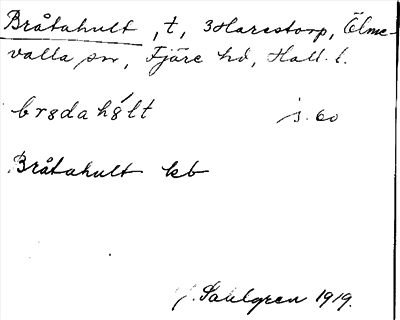 Bråtahult, t, 3 Harestorp, Ölme-
valla sn, Fjäre hd, Hall. l.
brɵdahɵ́lt s. 60
Bråtahult kb
J. Sahlgren 1919.